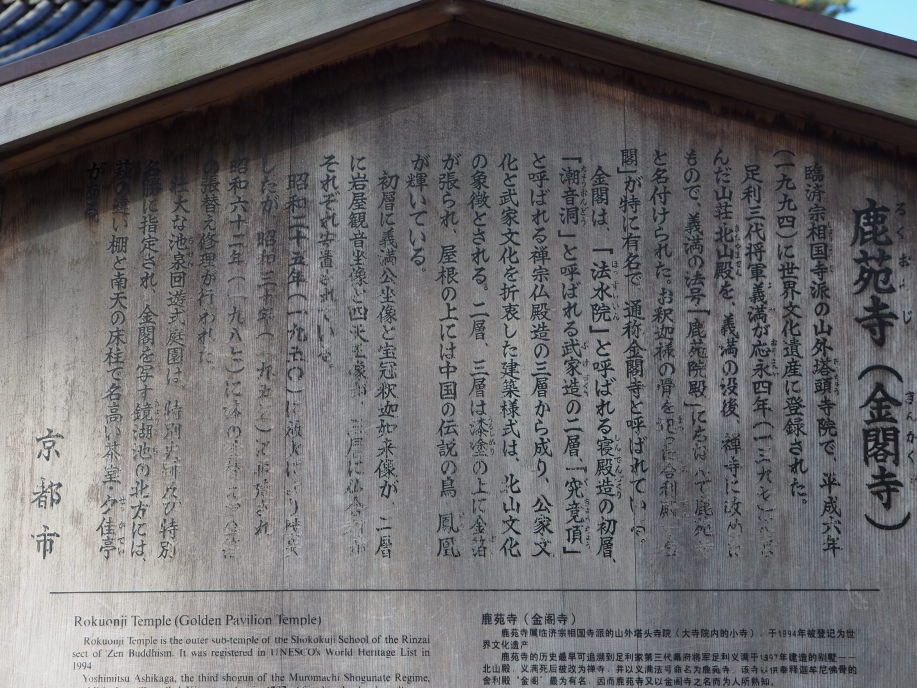 鹿苑寺（金閣寺）
臨済宗相国寺派の山外塔頭寺院で、平成六年
（一九九四）に世界文化遺産に登録された。
足利三代将軍義満が応永四年（一三九七）
んだ山荘北山殿を、義満の没後、禅寺に改め
もので、義満の法号「鹿苑院殿」に
と名付けられた。お釈迦様の骨を
閣」が特に有名で、通称金閣寺と呼ばれてい
金閣は、「法水院」と呼ばれる寝殿造の初層、
「潮音洞」と呼ばれる武家造の二層、「究竟頂」
と呼ばれる禅宗仏殿造の三層から成り、公家文
化と武家文化を折衷した建築様式は、北山文化
の象徴とされる。二層、三層は漆塗の上に金箔
が張られ、屋根の上には中国の伝説の鳥 鳳凰
が輝いている。
初層に義満公坐像と宝冠釈迦如来像が 二層
に岩屋観音坐像と四天王
それぞれ安置されている
昭和二十五年（一九五〇）に
したが 昭和三十年
昭和六十二年（一九八七）に
の張替え修理が行われた
壮大な池泉回遊式庭園は 特別 特別
名勝に指定され 金閣を写す鏡湖池の北方には、
萩の違い棚と南天の床柱で名高い茶室 夕佳亭
がある
京都市
Rokuonji Temple (Golden Pavilion Temple)
Rokuonji Temple is the outer sub-temple of the Shokokuji School of the Rinzai
sect of Zen Buddhism. It was registered in UNESCO's World Heritage List in
1994.
Yoshimitsu Ashikaga, the third shogun of the Muromachi Shogunate Regime,
鹿苑寺（金阁寺）
鹿苑寺属临济宗相国寺派的山外塔头寺院（大寺院内的小寺），于1994年被登记为世
界文化遗产
鹿苑寺的历史最早可追溯到足利家第三代幕府将军足利义满于1397年建造的别墅——
北山殿，义满死后被改为禅寺，并以义满法号命名为鹿苑寺，该寺以供奉释迦牟尼佛骨的
舍利殿“金阁”最为有名，因而鹿苑寺又以金阁寺之名而为人所熟知。